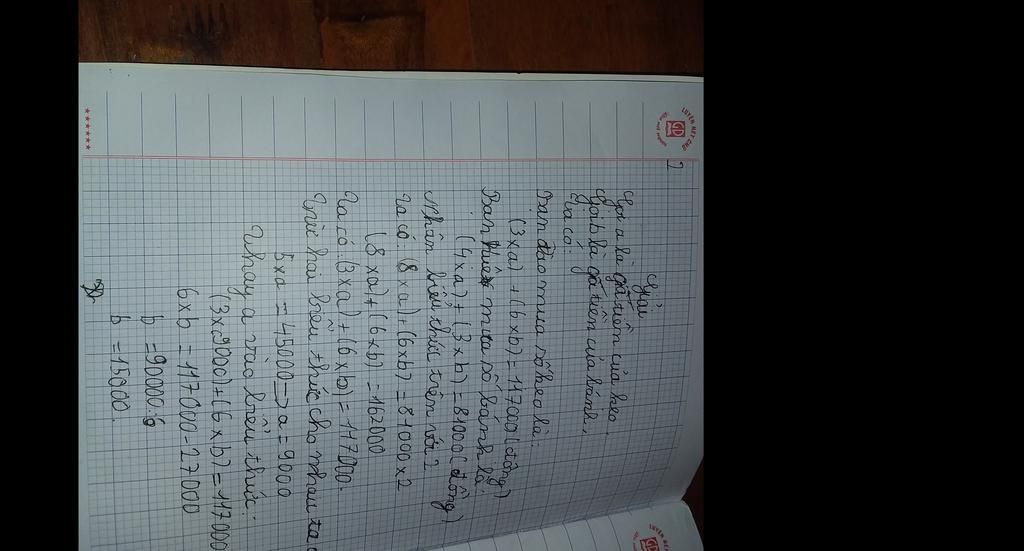 LUYỆN NÉT CHỮ
1
Giải
Gọi a là gía tiền của kẹo.
Gọi b là gía tiền của bánh.
Ta có:
Bạn đào mua số kẹo là:
(3 x a) + (6 x b) = 117000 (đồng)
Bạn Huệ mua số bánh là:
(4 x a) + (3 x b) = 81000 (đồng)
Nhân biểu thức trên với 2
Ta có: (8 x a) + (6 x b) = 81000 x 2
(8 x a) + (6 x b) = 162000
Ta có: (3 x a) + (6 x b) = 117000.
Trừ hai biểu thức cho nhau ta c
5 x a = 45000 → a = 9000
Thay a vào biểu thức:
(3 x 9000) + (6 x b) = 117000
6 x b = 117000 - 27000
b = 90000:6
b = 15000.